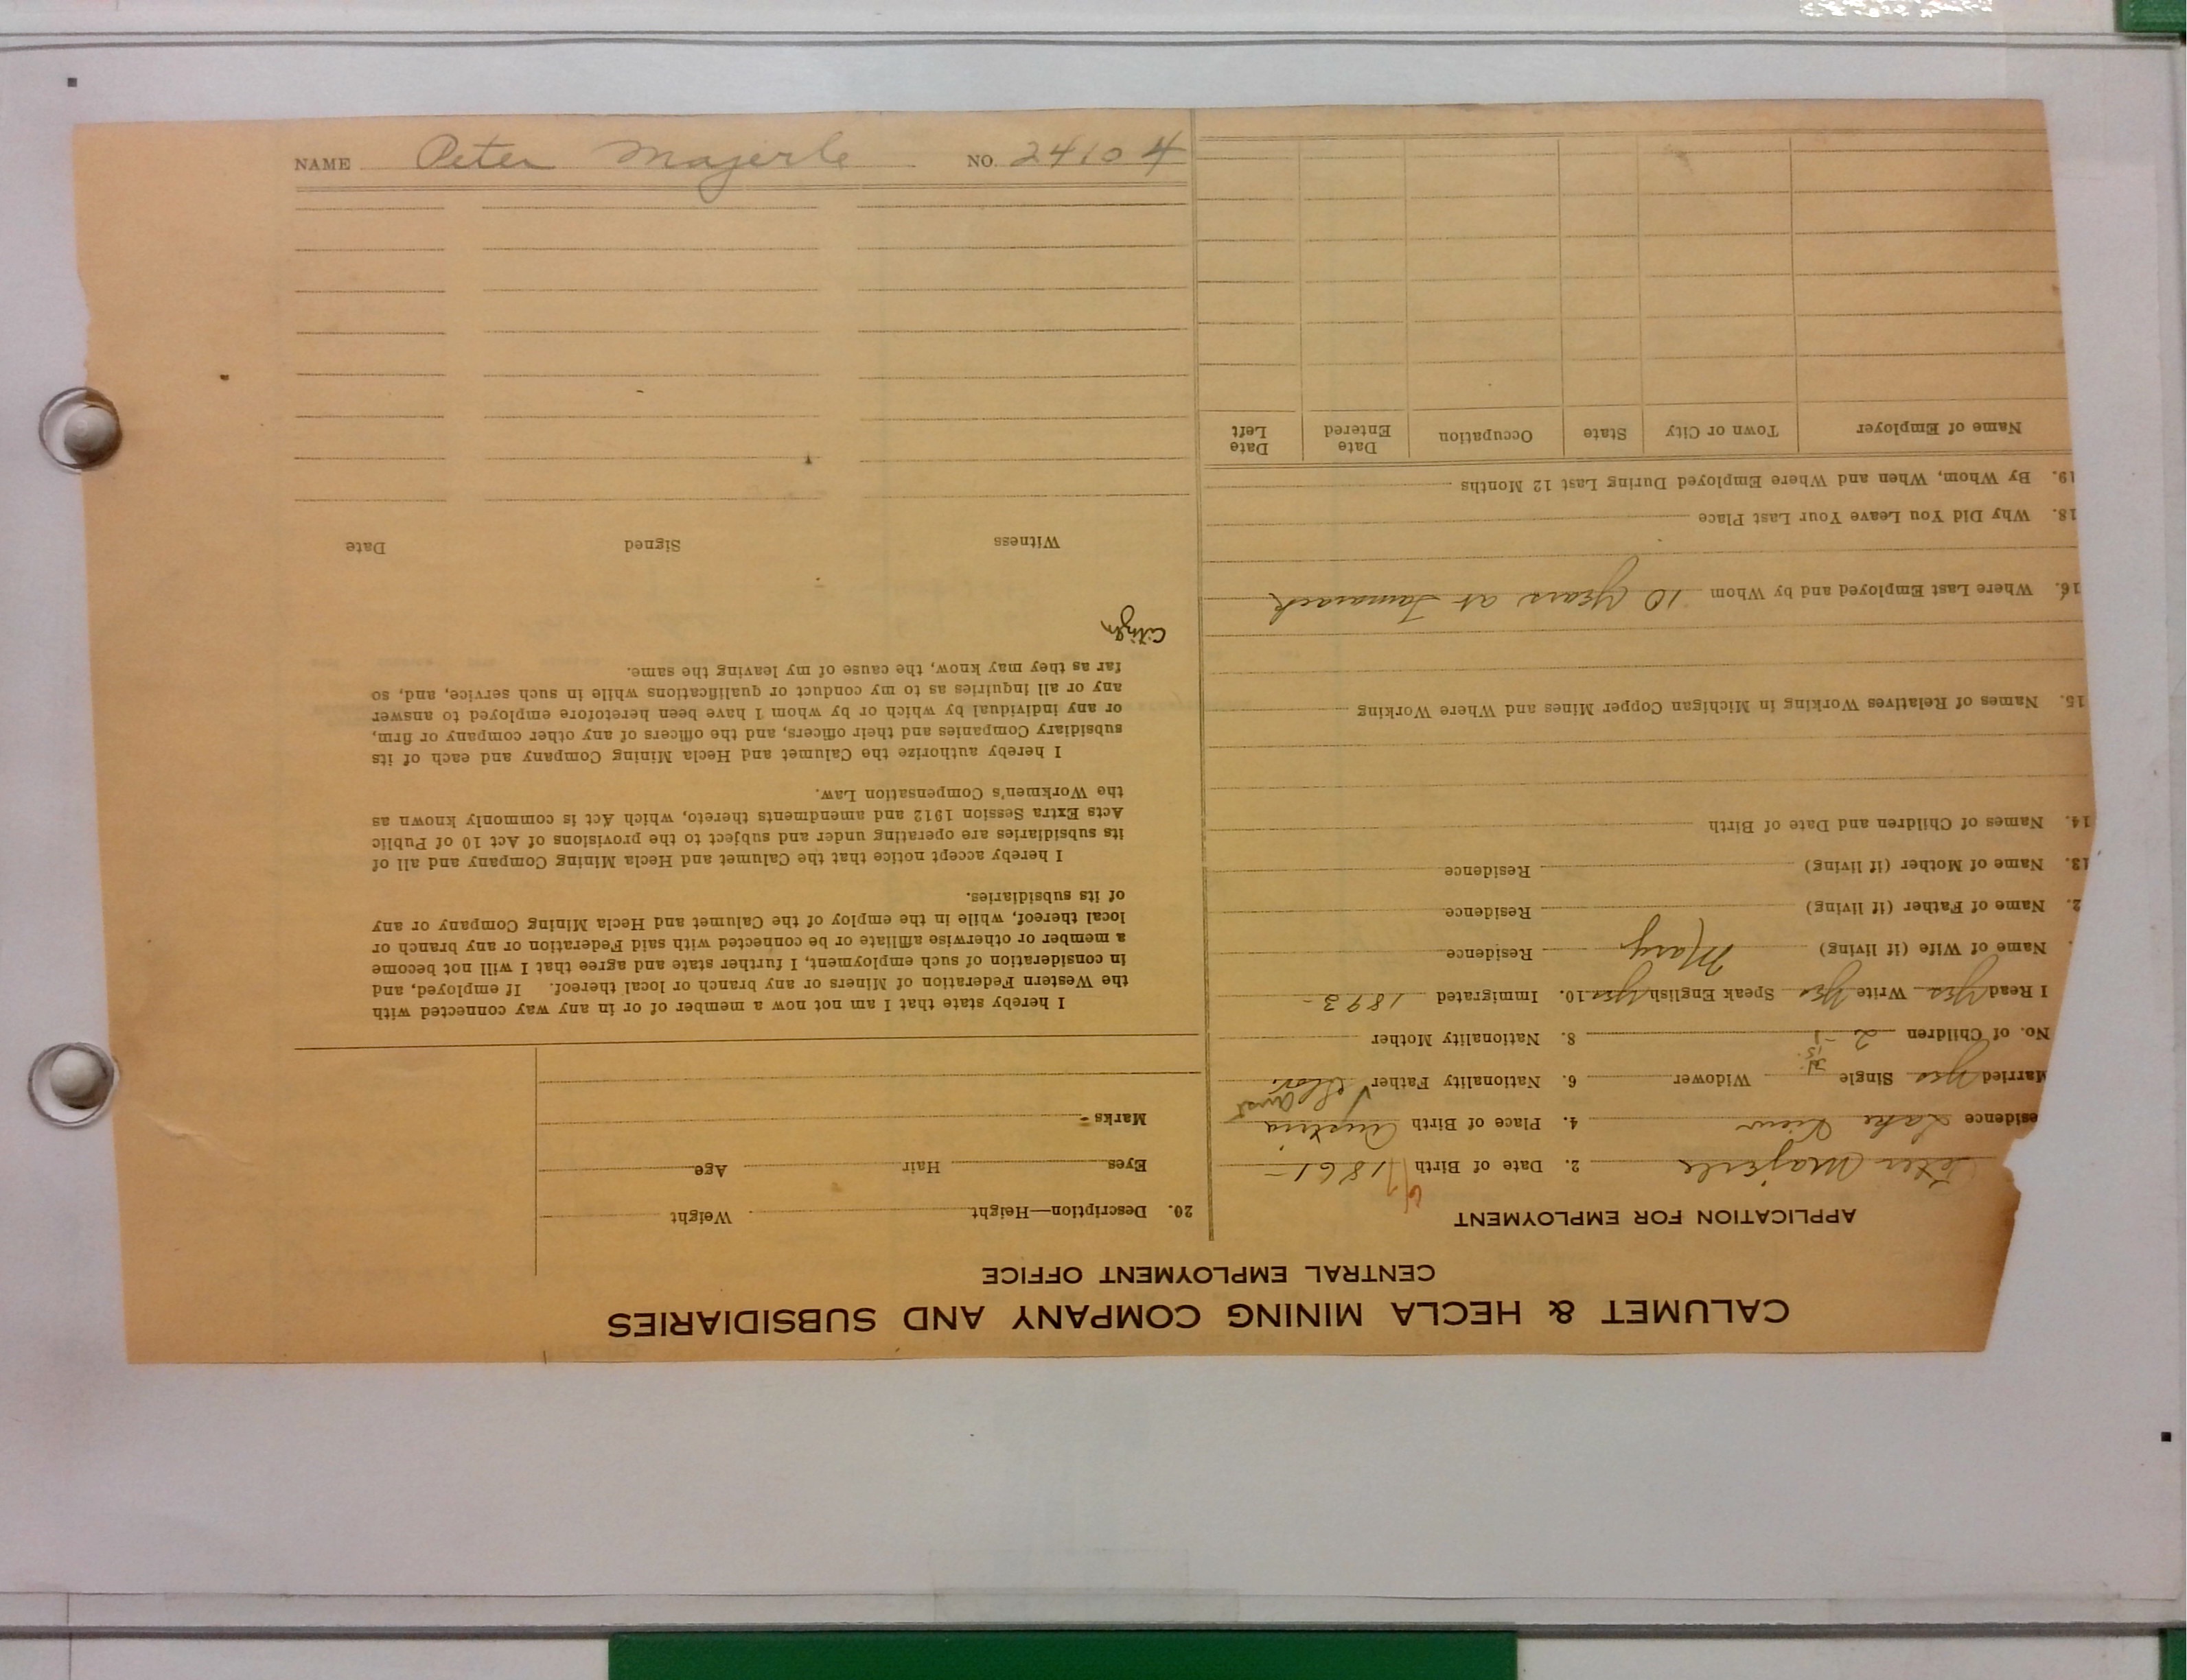 CALUMET & HECLA MINING COMPANY AND SUBSIDIARIES
CENTRAL EMPLOYMENT OFFICE
APPLICATION FOR EMPLOYMENT
Peter Majerle 2. Date of Birth 1861-
esidence Lake View 4. Place of Birth Austria
Married Yes Single Widower 6. Nationality Father
No. of Children 2 8. Nationality Mother
I Read Yes Write Yes Speak English Yes 10. Immigrated 1893-
. Name of Wife (if living) Mary Residence
2. Name of Father (if living) Residence
13. Name of Mother (if living) Residence
14. Names of Children and Date of Birth
15. Names of Relatives Working in Michigan Copper Mines and Where Working
16. Where Last Employed and by Whom 10 Years at Tamarack
18. Why Did You Leave Your Last Place
19. By Whom, When and Where Employed During Last 12 Months
Name of Employer Town or City State Occupation Date Entered Date Left
20. Description—Height Weight
Eyes Hair Age
Marks -
I hereby state that I am not now a member of or in any way connected with
the Western Federation of Miners or any branch or local thereof. If employed, and
in consideration of such employment, I further state and agree that I will not become
a member or otherwise affiliate or be connected with said Federation or any branch or
local thereof, while in the employ of the Calumet and Hecla Mining Company or any
of its subsidiaries.
I hereby accept notice that the Calumet and Hecla Mining Company and all of
its subsidiaries are operating under and subject to the provisions of Act 10 of Public
Acts Extra Session 1912 and amendments thereto, which Act is commonly known as
the Workmen's Compensation Law.
I hereby authorize the Calumet and Hecla Mining Company and each of its
subsidiary Companies and their officers, and the officers of any other company or firm,
or any individual by which or by whom I have been heretofore employed to answer
any or all inquiries as to my conduct or qualifications while in such service, and, so
far as they may know, the cause of my leaving the same.
Citizen
Witness Signed Date
NAME Peter Majerle NO. 24104